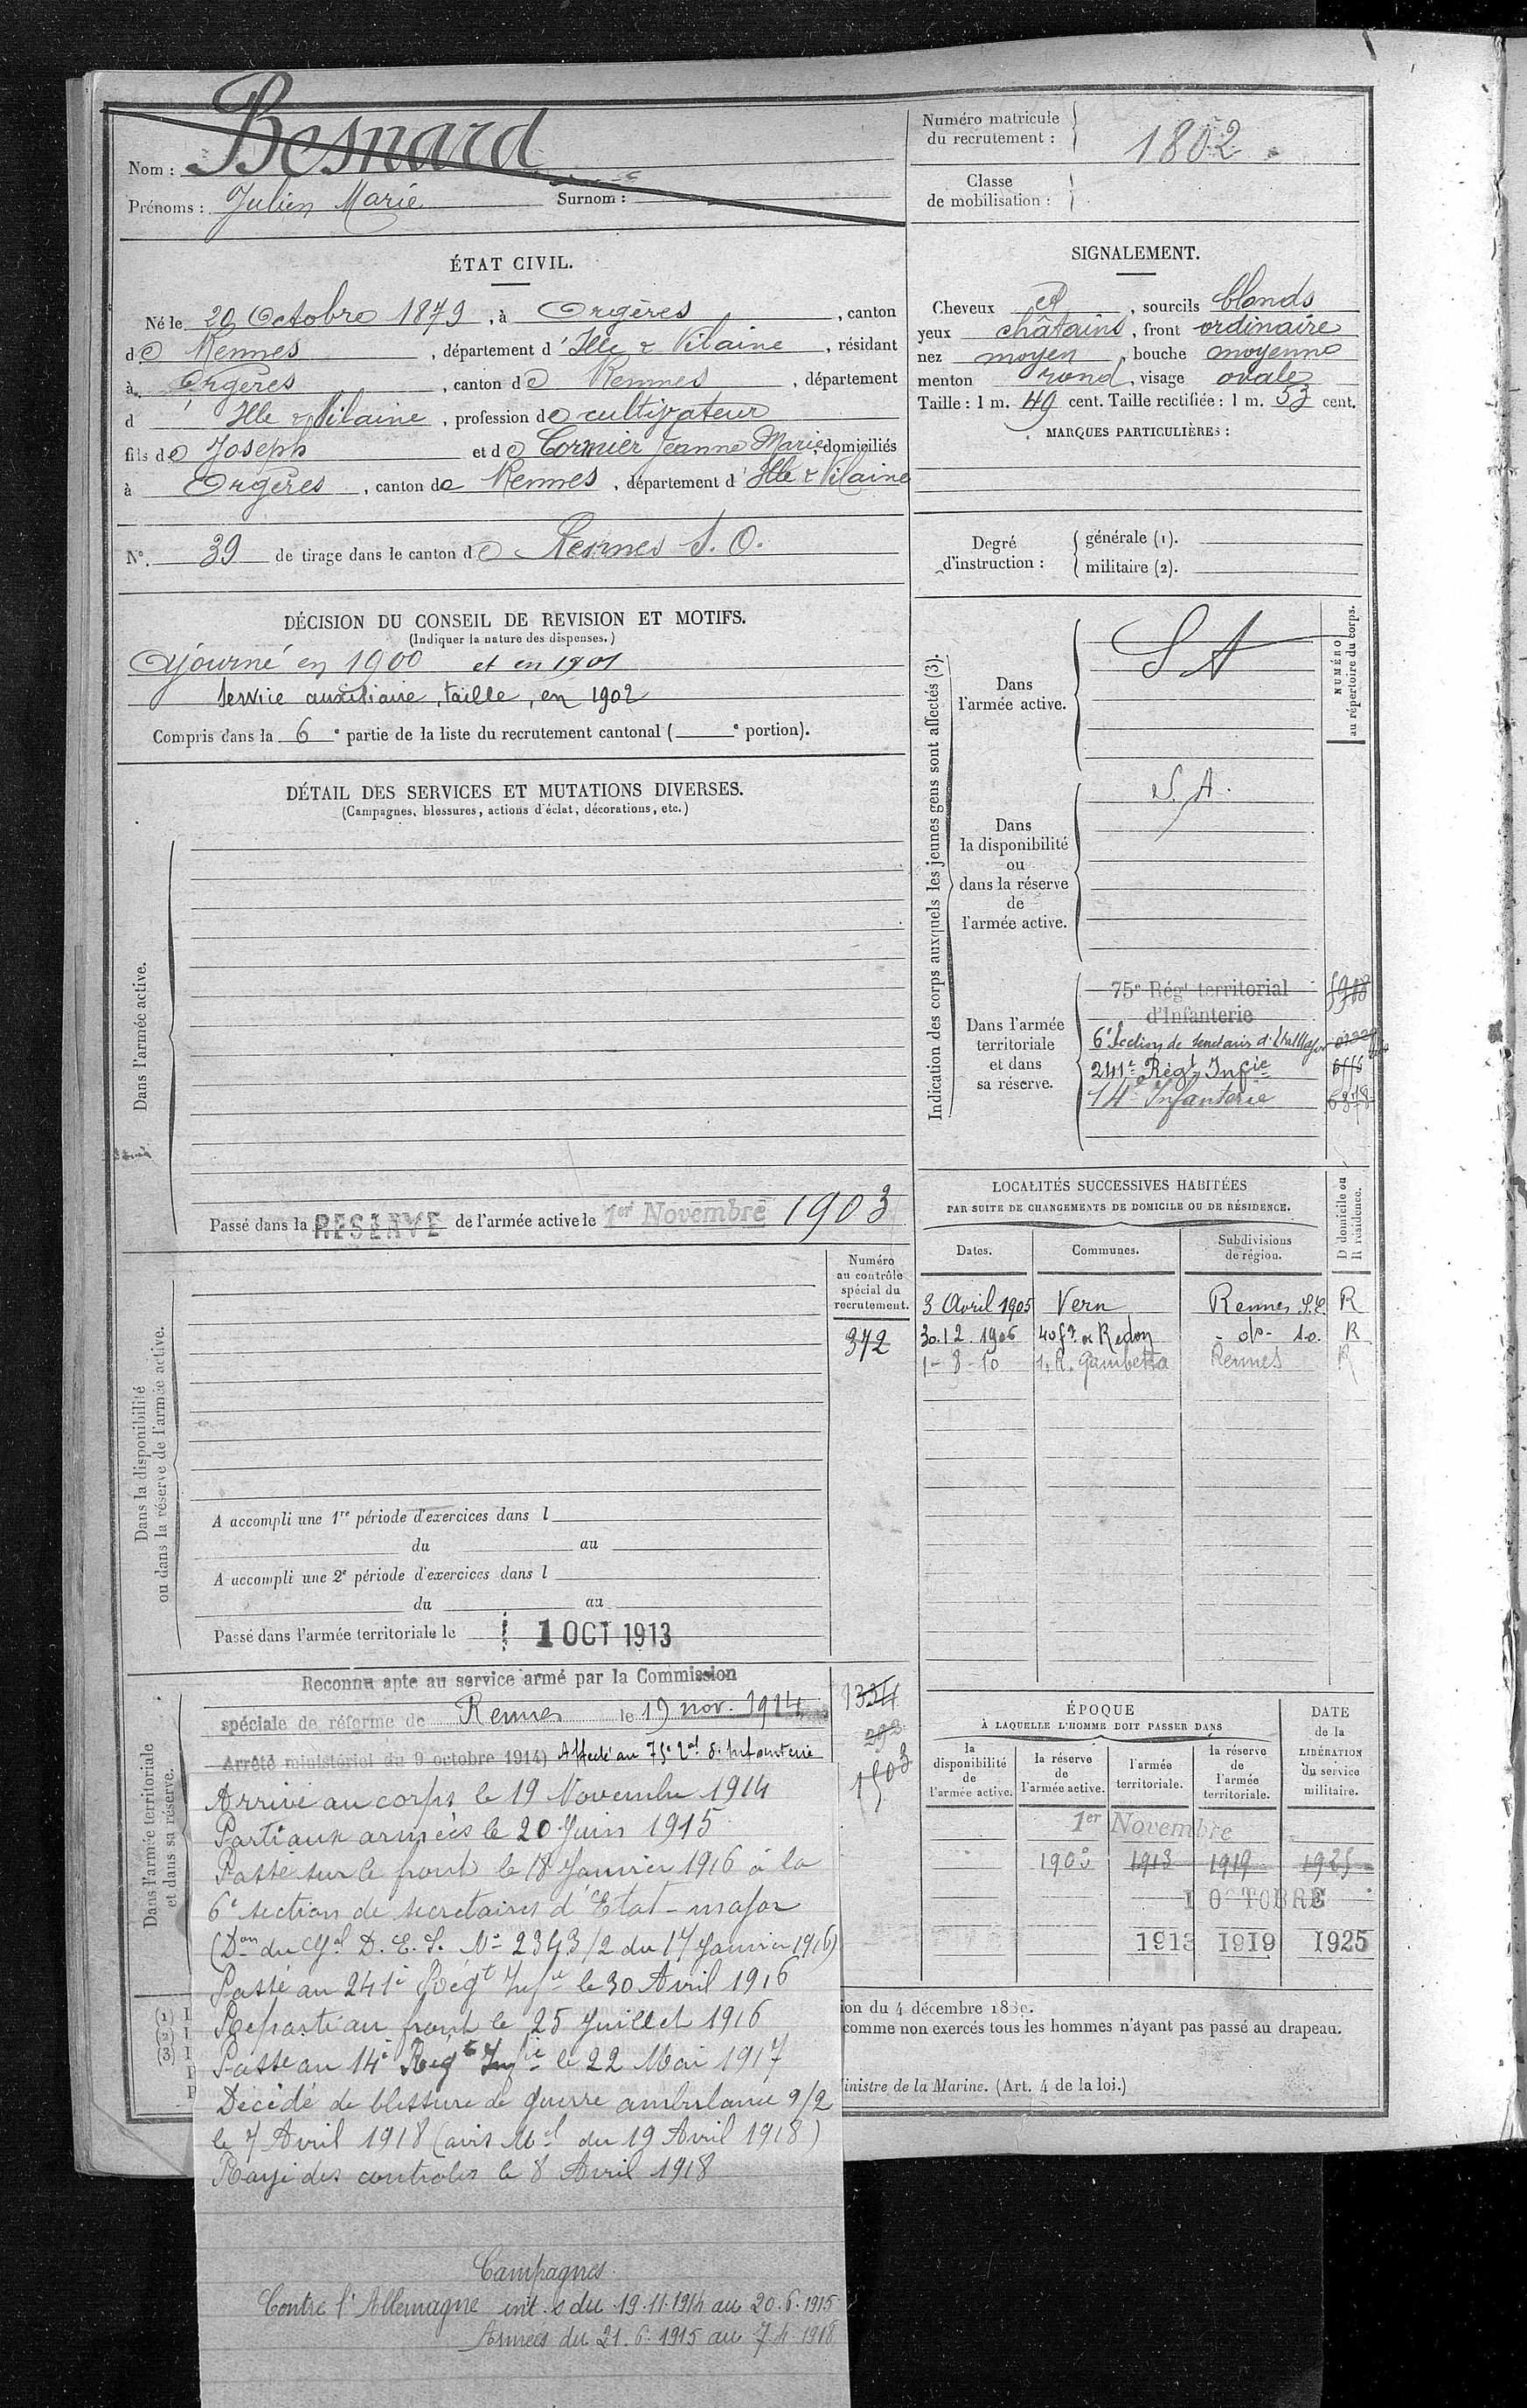 Nom : Besnard
Prénoms : Julien Marie Surnom :
Numéro matricule
du recrutement :
1802
Classe
de mobilisation :
ÉTAT CIVIL.
Né le 20 Octobre 1879, à Orgères, canton
de Rennes, département d'Ille & Vilaine, résidant
à Orgères, canton de Rennes, département
d Ille & Vilaine, profession de cultivateur
fils de Joseph et de Cormier Jeanne Marie, domiciliés
à Orgères, canton de Rennes, département d'Ille & Vilaine
N°. 39 de tirage dans le canton de Rennes S. O.
SIGNALEMENT.
Cheveux et, sourcils blonds
yeux châtains, front ordinaire
nez moyen, bouche moyenne
menton rond, visage ovale
Taille : 1 m. 49 cent. Taille rectifiée : 1 m. 53 cent.
MARQUES PARTICULIÈRES :
Degré
d'instruction :
générale (1).
militaire (2).
DÉCISION DU CONSEIL DE REVISION ET MOTIFS.
(Indiquer la nature des dispenses.)
Ajourné en 1900 et en 1901
Service auxiliaire, taille, en 1902
Compris dans la 6e partie de la liste du recrutement cantonal ( e portion).
DÉTAIL DES SERVICES ET MUTATIONS DIVERSES.
(Campagnes, blessures, actions d'éclat, décorations, etc.)
Dans l'armée active.
Passé dans la RESERVE de l'armée active le 1er Novembre 1903
Indication des corps auxquels les jeunes gens sont affectés (3).
NUMÉRO
au répertoire du corps.
Dans
l'armée active.
S A
Dans
la disponibilité
ou
dans la réserve
de
l'armée active.
S. A.
Dans l'armée
territoriale
et dans
sa réserve.
75e Régt territorial
d'Infanterie
6e Section de
241e Régt Infie
14e Infanterie
6378
LOCALITÉS SUCCESSIVES HABITÉES
PAR SUITE DE CHANGEMENTS DE DOMICILE OU DE RÉSIDENCE.
D domicile ou
R résidence.
Dates.
Communes.
Subdivisions
de région.
3 Avril 1905 Vern Rennes S.E R
30.12.1906 40 fg de Redon - do - S.O. R
1-8-10 1. R. Gambetta Rennes R
Dans la disponibilité
ou dans la réserve de l'armée active.
Numéro
au contrôle
spécial du
recrutement.
372
A accompli une 1re période d'exercices dans l
du au
A accompli une 2e période d'exercices dans l
du au
Passé dans l'armée territoriale le 1 OCT 1913
Dans l'armée territoriale
et dans sa réserve.
Reconnu apte au service armé par la Commission
spéciale de réforme de Rennes le 19 nov. 1914
Arrêté ministériel du 9 octobre 1914) Affecté au 75e Ral d'Infanterie
1334
292
1503
Arrivé au corps le 19 Novembre 1914
Parti aux armées le 20 Juin 1915
Passé sur le front le 18 Janvier 1916 à la
6e section de secrétaires d'Etat-major
(Don du Gal D. E. S. No 2343/2 du 17 Janvier 1916)
Passé au 241e Régt Infie le 30 Avril 1916
Reparti au front le 25 Juillet 1916
Passé au 14e Régt Infie le 22 Mai 1917
Décédé de blessure de guerre ambulance 9/2
le 7 Avril 1918 (avis Mel du 19 Avril 1918)
Rayé des contrôles le 8 Avril 1918
Campagnes
Contre l'Allemagne int. s du 19.11.1914 au 20.6.1915
Armées du 21.6.1915 au 7.4.1918
ÉPOQUE
À LAQUELLE L'HOMME DOIT PASSER DANS
la
disponibilité
de
l'armée active.
la réserve
de
l'armée active.
l'armée
territoriale.
la réserve
de
l'armée
territoriale.
DATE
de la
LIBÉRATION
du service
militaire.
1er Novembre
1903 1913 1919 1925
1 OCTOBRE
1913 1919 1925
(1)
(2)
(3)
ion du 4 décembre 1889.
comme non exercés tous les hommes n'ayant pas passé au drapeau.
inistre de la Marine. (Art. 4 de la loi.)